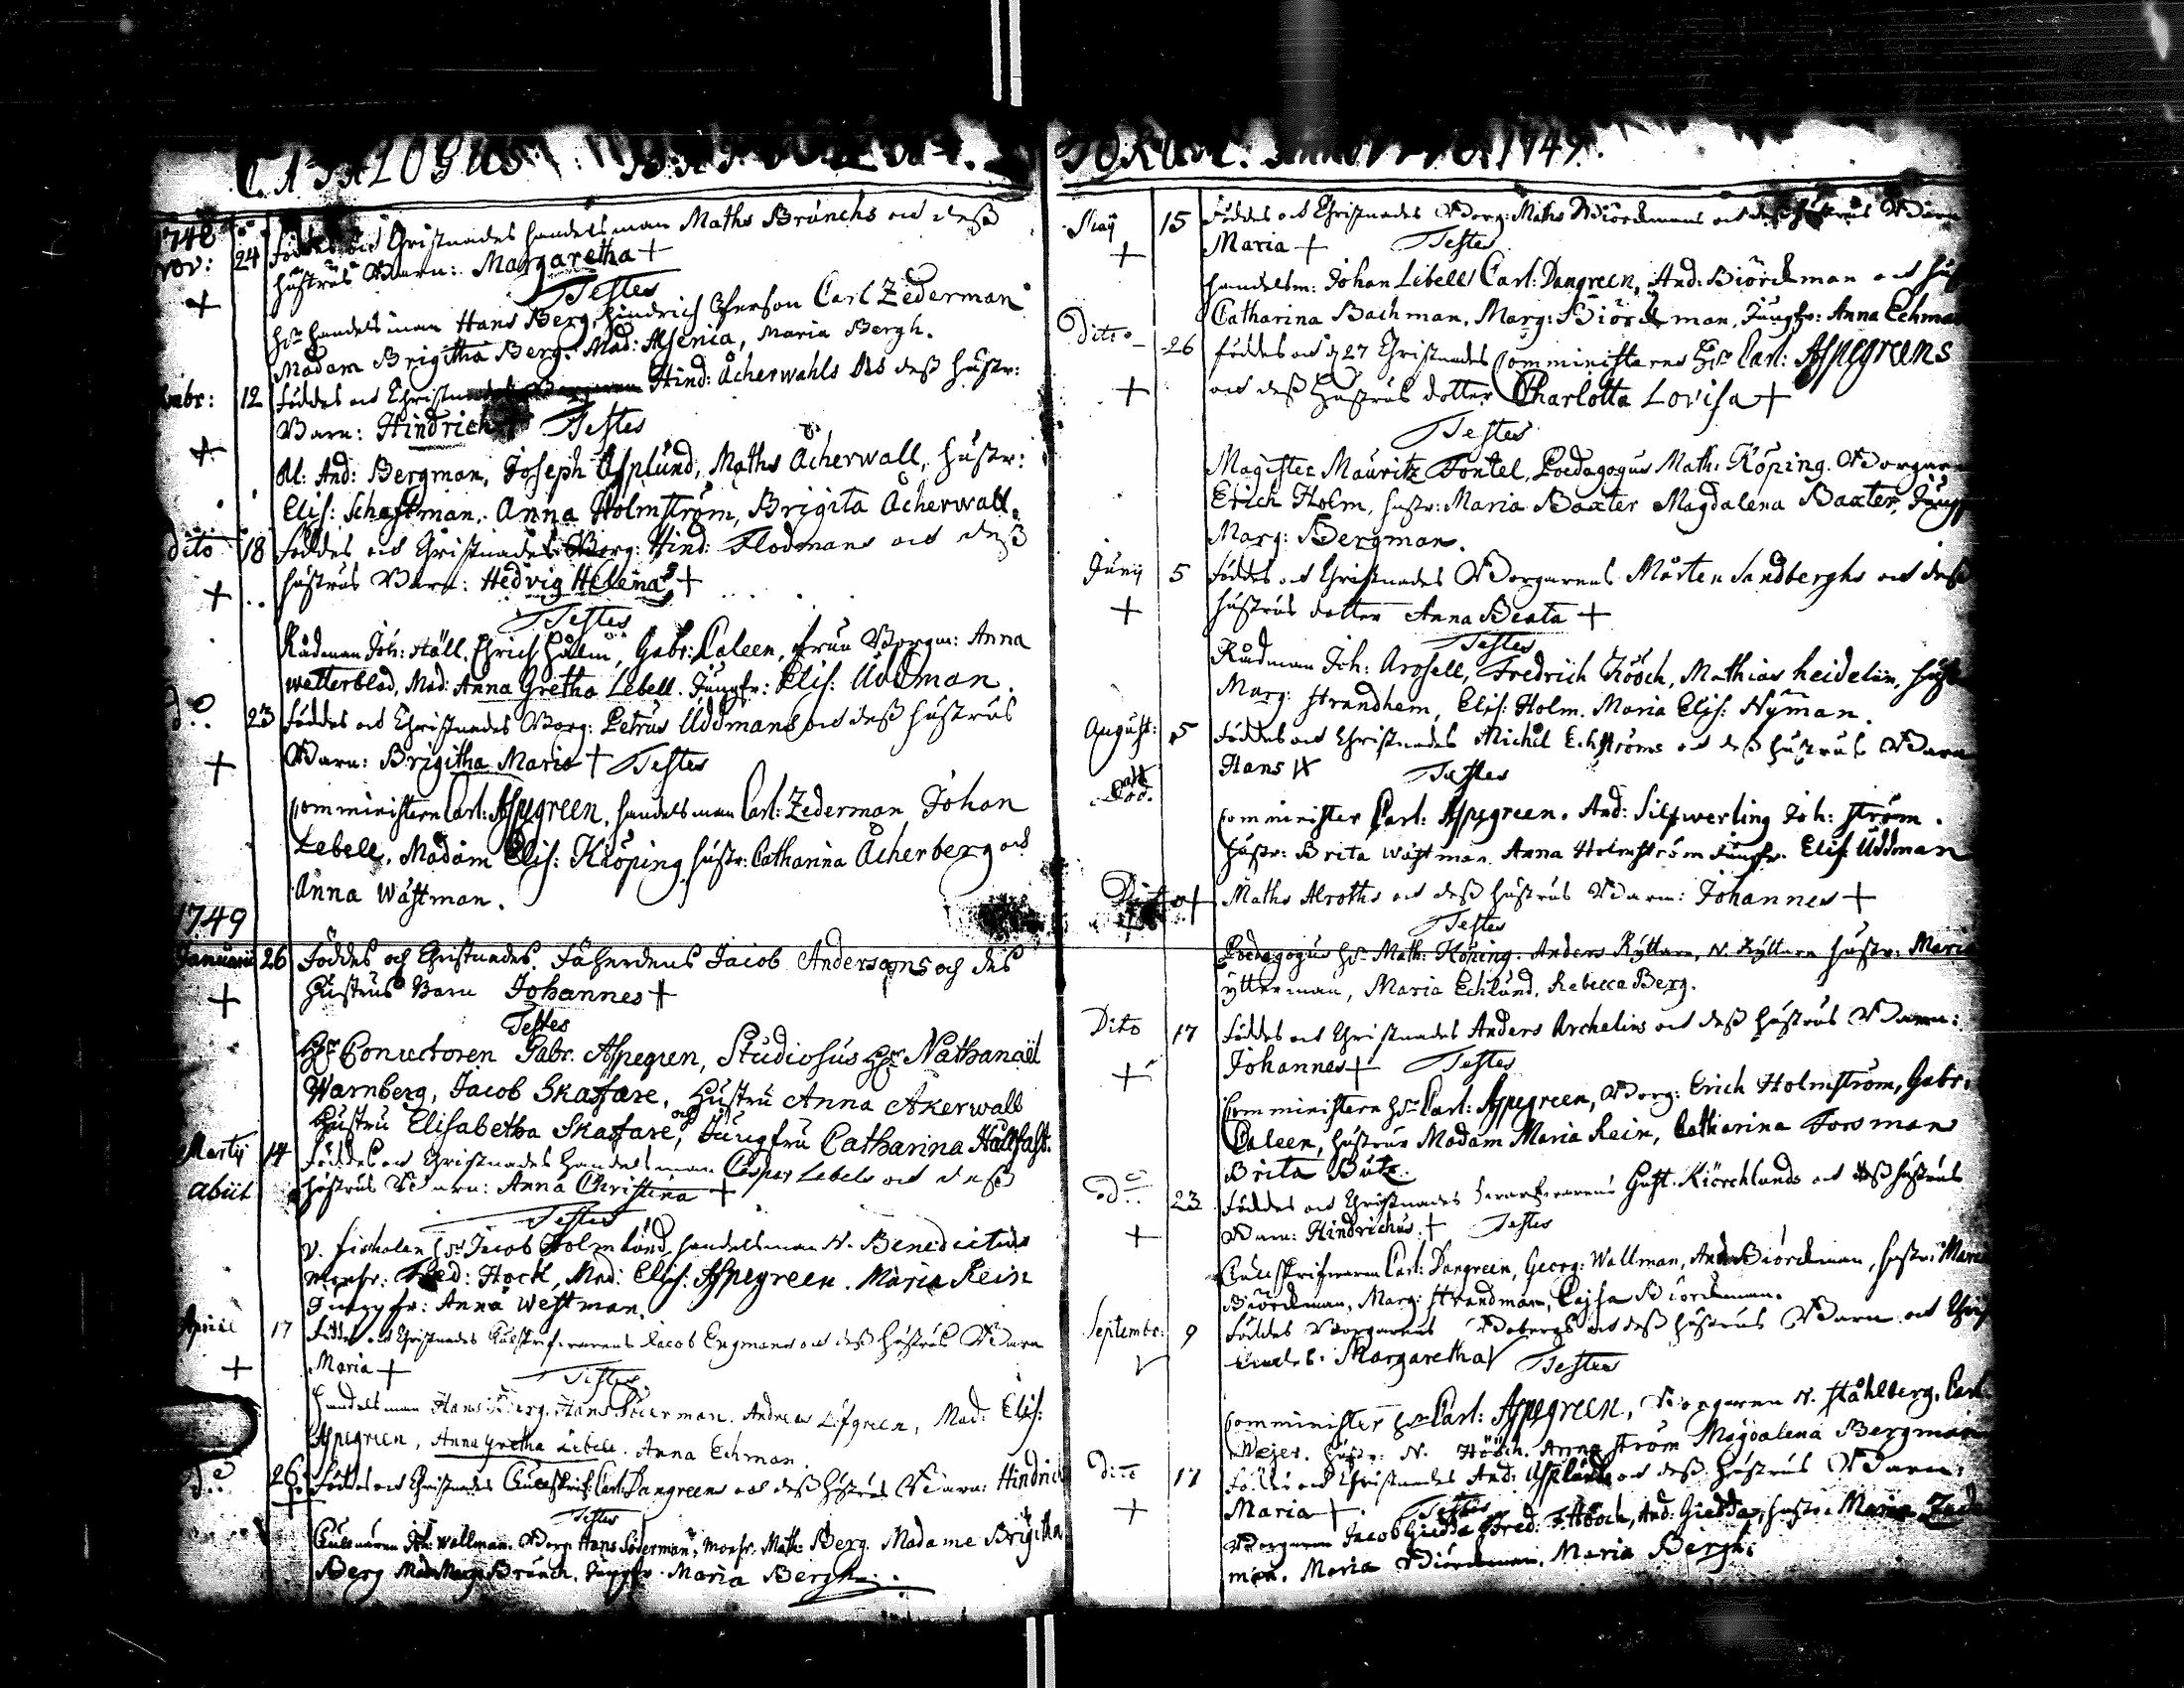 CATALOGUS
1748
Nov: 24 Föddes och Christnades handelsman Maths Brunchs och dess
hustrus Barn: Margaretha +
Testes
Hr handelsman Hans Berg, Hindrich Carl Zederman
Madam Brigitha Berg. Mad: Alsenia, Maria Bergh.
12 Föddes och Hind: Åcherwahls dess hustr:
Barn: Hindrich + Testes
And: Bergman, Joseph Asplund, Maths Åcherwall, hustr:
Elis: Schaftman, Anna Holmström, Brigita Åcherwall.
dito 18 Föddes och Christnades Borg: Hind: Flodmans och dess
hustrus Barn: Hedvig Helena +
Testes
Rådman Joh: Ståll, Ehrich Holm, Gabr: Caleen, fruu Borgm: Anna
Wetterblad, Mad: Anna Gretha Lebell. Jungfr: Elis: Uddman.
do 23 Föddes och Christnades Borg: Petrus Uddmans och dess hustrus
Barn: Brigitha Maria + Testes
Comministern Carl: Aspegreen, handelsman Carl: Zederman Johan
Lebell, Madam Elis: Kiöping hustr: Catharina Åcherberg och
Anna Wästman.
1749
Januarii 26 Föddes och Christnades Fäherdens Jacob Andersons och des
Hustrus Barn Johannes +
Testes
Hr Conrectoren Gabr. Aspegren, Studiosus Hr Nathanaël
Warnberg, Jacob Skaffare, Hustru Anna Åkerwall
Hustru Elisabetha Skaffare, och Jungfru Catharina Hallfast.
Martij 14 Föddes och Christnades Handelsman Casper Lebels och dess
abiit hustrus Barn: Anna Christina +
Testes
V. fischalen Hr Jacob Holmlund, handelsman N. Benedictius
Monsr: Fred: Hock, Mad: Elis: Aspegreen. Maria Rein
Jungfr: Anna Westman.
April 17 Föddes och Christnades Jacob Engmans och dess hustrus Barn
Maria +
Testes
Handelsman Hans Berg. Hans Söderman. Andreas Löfgreen, Mad: Elis:
Aspegreen, Anna Gretha Lebell. Anna Echman.
do 26 Föddes och Christnades Carl: Dangreens och dess hustrus Barn: Hindrich
Testes
Joh: Wallman. Borg Hans Söderman, Monsr. Math: Berg. Madame Brigitha
Berg Mad: Marg: Brunch. Jungfr. Maria Bergh.
1749.
Maij 15 Föddes och Christnades Borg: Maths Biörckmans och dess hustrus Barn
Maria + Testes
handelsm: Johan Libell Carl: Dangreen, And: Biörckman och hus
Catharina Bachman, Marg: Biörckman, Jungfr: Anna Echman
Dito 26 föddes och d 27 Christnades Comministerns Hr Carl: Aspegreens
och dess Hustrus dotter Charlotta Lovisa +
Testes
Magister Mauritz Fontel, Poedagogus Math: Köping. Borgar
Erich Holm, hustr: Maria Baxter Magdalena Baxter, Jungf
Marg: Bergman.
Junij 5 Föddes och Christnades Borgarens Mårten Sandberghs och dess
hustrus dotter Anna Beata +
Testes
Rådman Joh: Arosell, Fredrich Höoch, Mathias heidelin, hust
Marg: Strandhem, Elis: Holm. Maria Elis: Nyman.
August: 5 Föddes och Christnades Michel Echströms och dess hustrus Barn
Hans Testes
Comminister Carl: Aspegreen. And: Silfwerling Joh: Ström.
hustr: Brita Wästman. Anna Holmström Jungfr. Elis: Uddman
Dito Maths Alroths och dess hustrus Barn: Johannes +
Testes
Poedagogus Hr Math: Köping. Anders Ryttare, N. Ryttare hustr: Maria
ytterman, Maria Echlund, Rebecca Berg.
Dito 17 Föddes och Christnades Anders Archelins och dess hustrus Barn:
Johannes + Testes
Comministern Hr Carl: Aspegreen, Borg: Erich Holmström, Gabr:
Caleen, hustrur Madam Maria Rein, Catharina Forsman
Brita Butz.
do 23 Föddes och Christnades Gust. Kiörchlunds och dess hustrus
Barn: Hindrichus + Testes
Carl: Dangreen, Georg: Wallman, And: Biörckman, hustr: Maria
Biörckman, Marg: Strandman, Cajsa Biörckman.
Septembr: 9 Föddes Borgarens och dess hustrus Barn och Chris
tnades. Margaretha Testes
Comminister Hr Carl: Aspegreen, Borgaren N. Ståhlberg, Carl.
Mejer. hustr: N. Höoch. Anna Ström Magdalena Bergman
Dito 17 Föddes och Christnades And: Asplunds och dess hustrus Barn:
Maria + Testes
Borgaren Jacob Giedda Fred: Höoch, And: Giedda, hustr: Maria
man. Maria Biörckman. Maria Bergh.